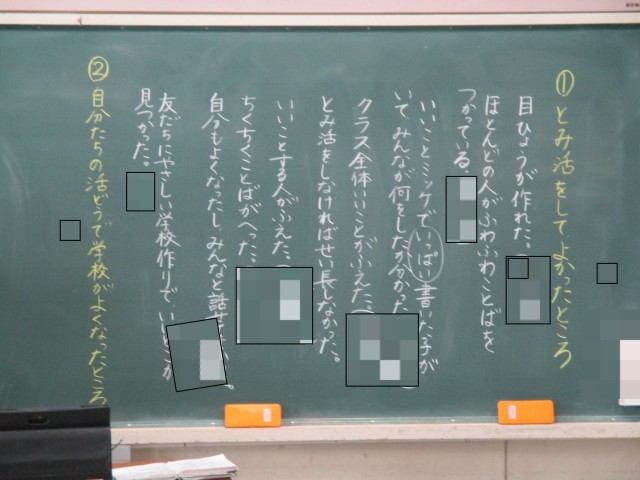 ① とみ活をしてよかったところ
目ひょうが作れた。
ほとんどの人がふわふわことばを
つかっている。
いいことミッケでいっぱい書いた子が
いて みんなが何をしたか分かった
クラス全体いいことがふえた
とみ活をしなければせい長しなかった。
いいことする人がふえた。
ちくちくことばがへった。
自分もよくなったし、みんなと話せ
友だちにやさしい学校作りで、いい
見つかった。
② 自分たちの活どうで学校がよくなったところ